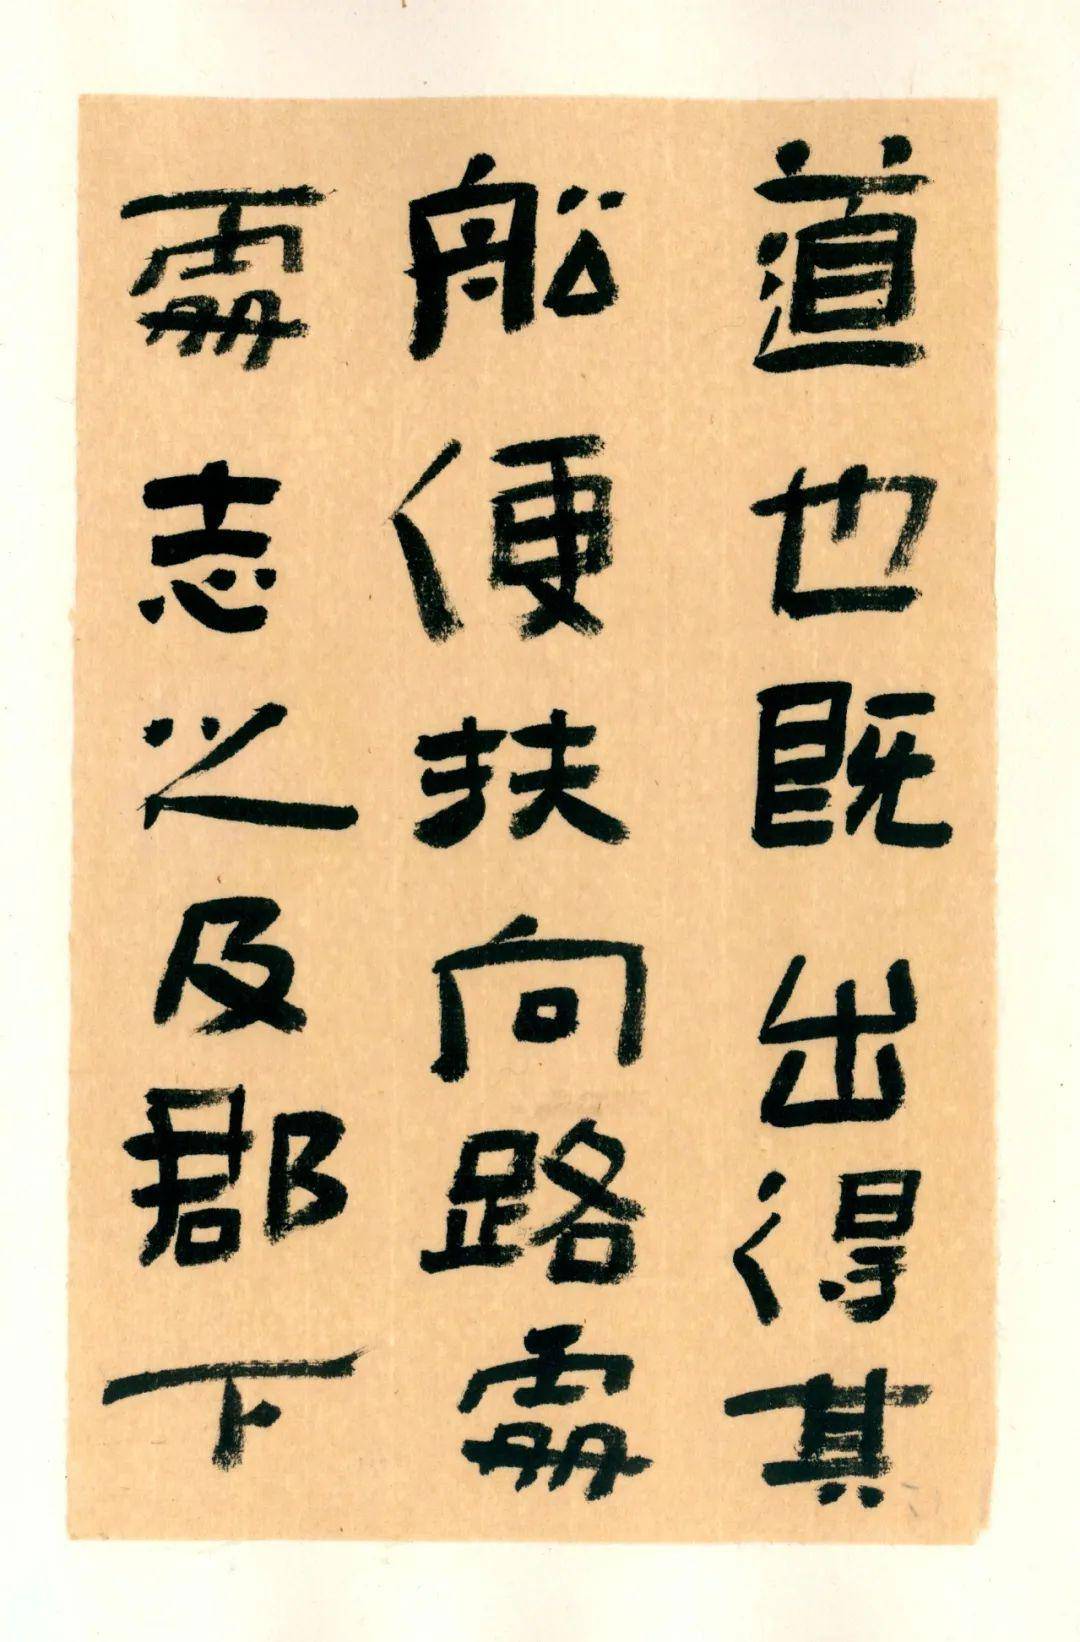 道也既出得其
船便扶向路處
處志之及郡下